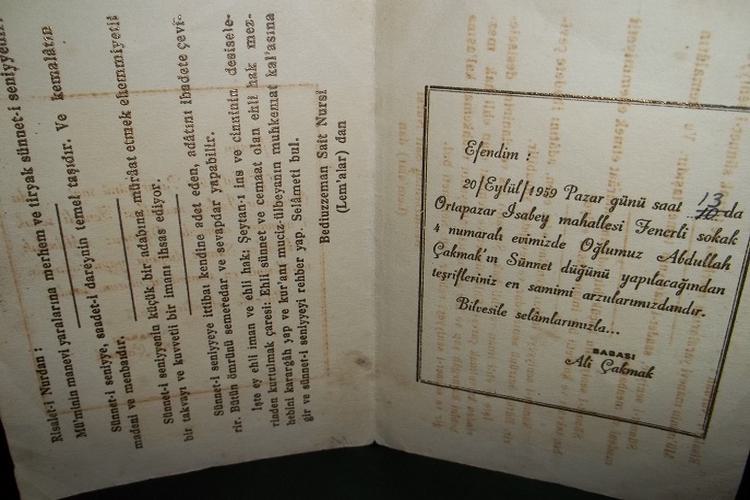 Risale-i Nurdan :
Mü'minin manevi yaralarına merhem ve tiryak sünnet-i seniyyedir.
Sünnet-i seniyye, saadet-i dareynin temel taşıdır. Ve kemalâtın
madeni ve menbaıdır.
Sünnet-i seniyyenin küçük bir adabına mürâat etmek ehemmiyetli
bir takvayı ve kuvvetli bir imanı ihsas ediyor.
Sünnet-i seniyyeye ittibaı kendine adet eden, adâtını ibadete çevi-
rir. Bütün ömrünü semeredar ve sevapdar yapabilir.
İşte ey ehli iman ve ehli hak; Şeytan-ı ins ve cinninin desisele-
rinden kurtulmak çaresi: Ehli sünnet ve cemaat olan ehli hak mez-
hebini karargâh yap ve kur'anı muciz-ülbeyanın muhkemat kal'asına
gir ve sünnet-i seniyyeyi rehber yap. Selâmeti bul.
Bediuzzeman Sait Nursi
(Lem'alar) dan
Efendim :
20/Eylül/1959 Pazar günü saat 13 da
Ortapazar İsabey mahallesi Fenerli sokak
4 numaralı evimizde Oğlumuz Abdullah
Çakmak'ın Sünnet düğünü yapılacağından
teşrifleriniz en samimi arzularımızdandır.
Bilvesile selâmlarımızla...
BABASI
Ali Çakmak